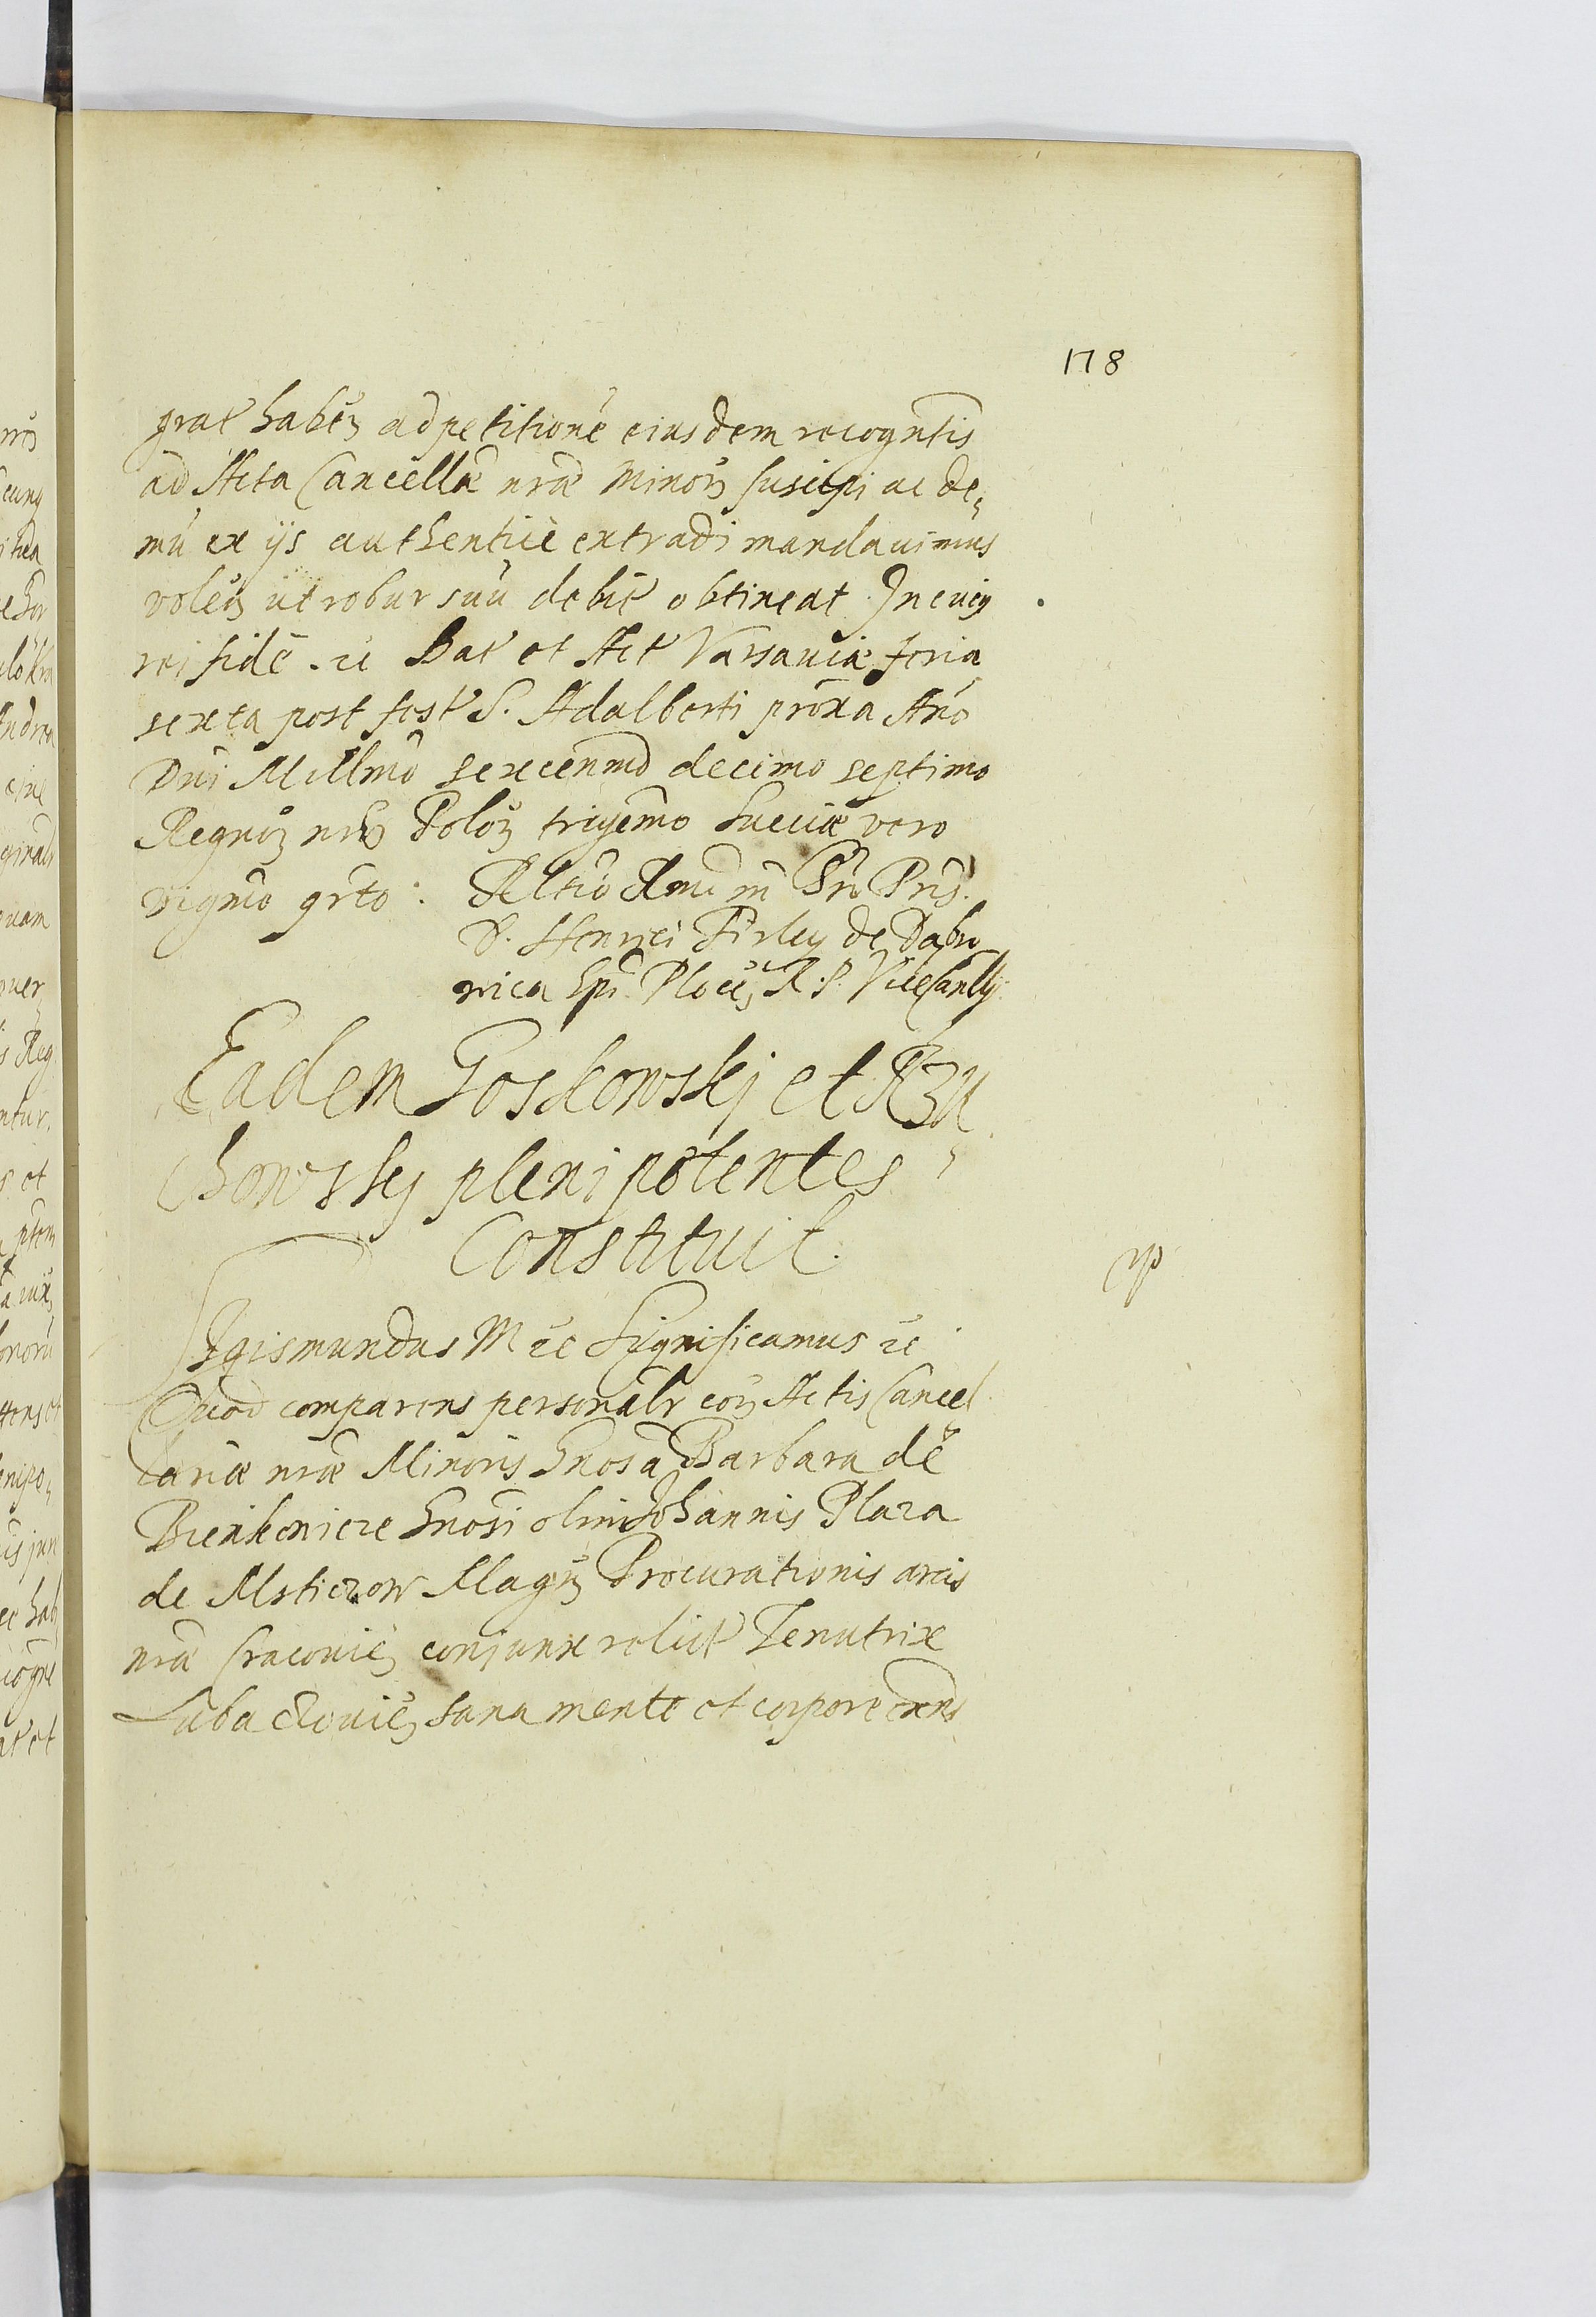 178
grat haben ad petitione eiusdem recogntis
ad Acta Cancellæ nræ Minor suscipi ac de„
mu ex ijs authentice extradi mandauimus
volen ut robur suu debit obtineat. In cuig
rei fide. rc Dat et Act Varsauiæ feria
sexta post fest S. Adalberti proxa Ano
Dni Millmo sexcenmo decimo septimo
Regnor nror Polon trigemo Sueciæ vero
vigmo qrto: Reltio Rmi in Chro Pris.
D. Henrici Firley de Dabro
wica Epi Plocen R. P. ViceCanlly
Eadem Goskowskj et Rzu
chowskj plenipotentes
Constituit.
Sigismundus III rc Significamus rc
Quod comparens personalr cor Actis Cancel
lariæ nræ Minoris Gnosa Barbara de
Bienkowicze Gnosi olim Johannis Plaza
de Msticzow Magri Procurationis arcis
nræ Cracouien conjunx relict Tenutrix
Lubaczouien sana mente et corpore exns